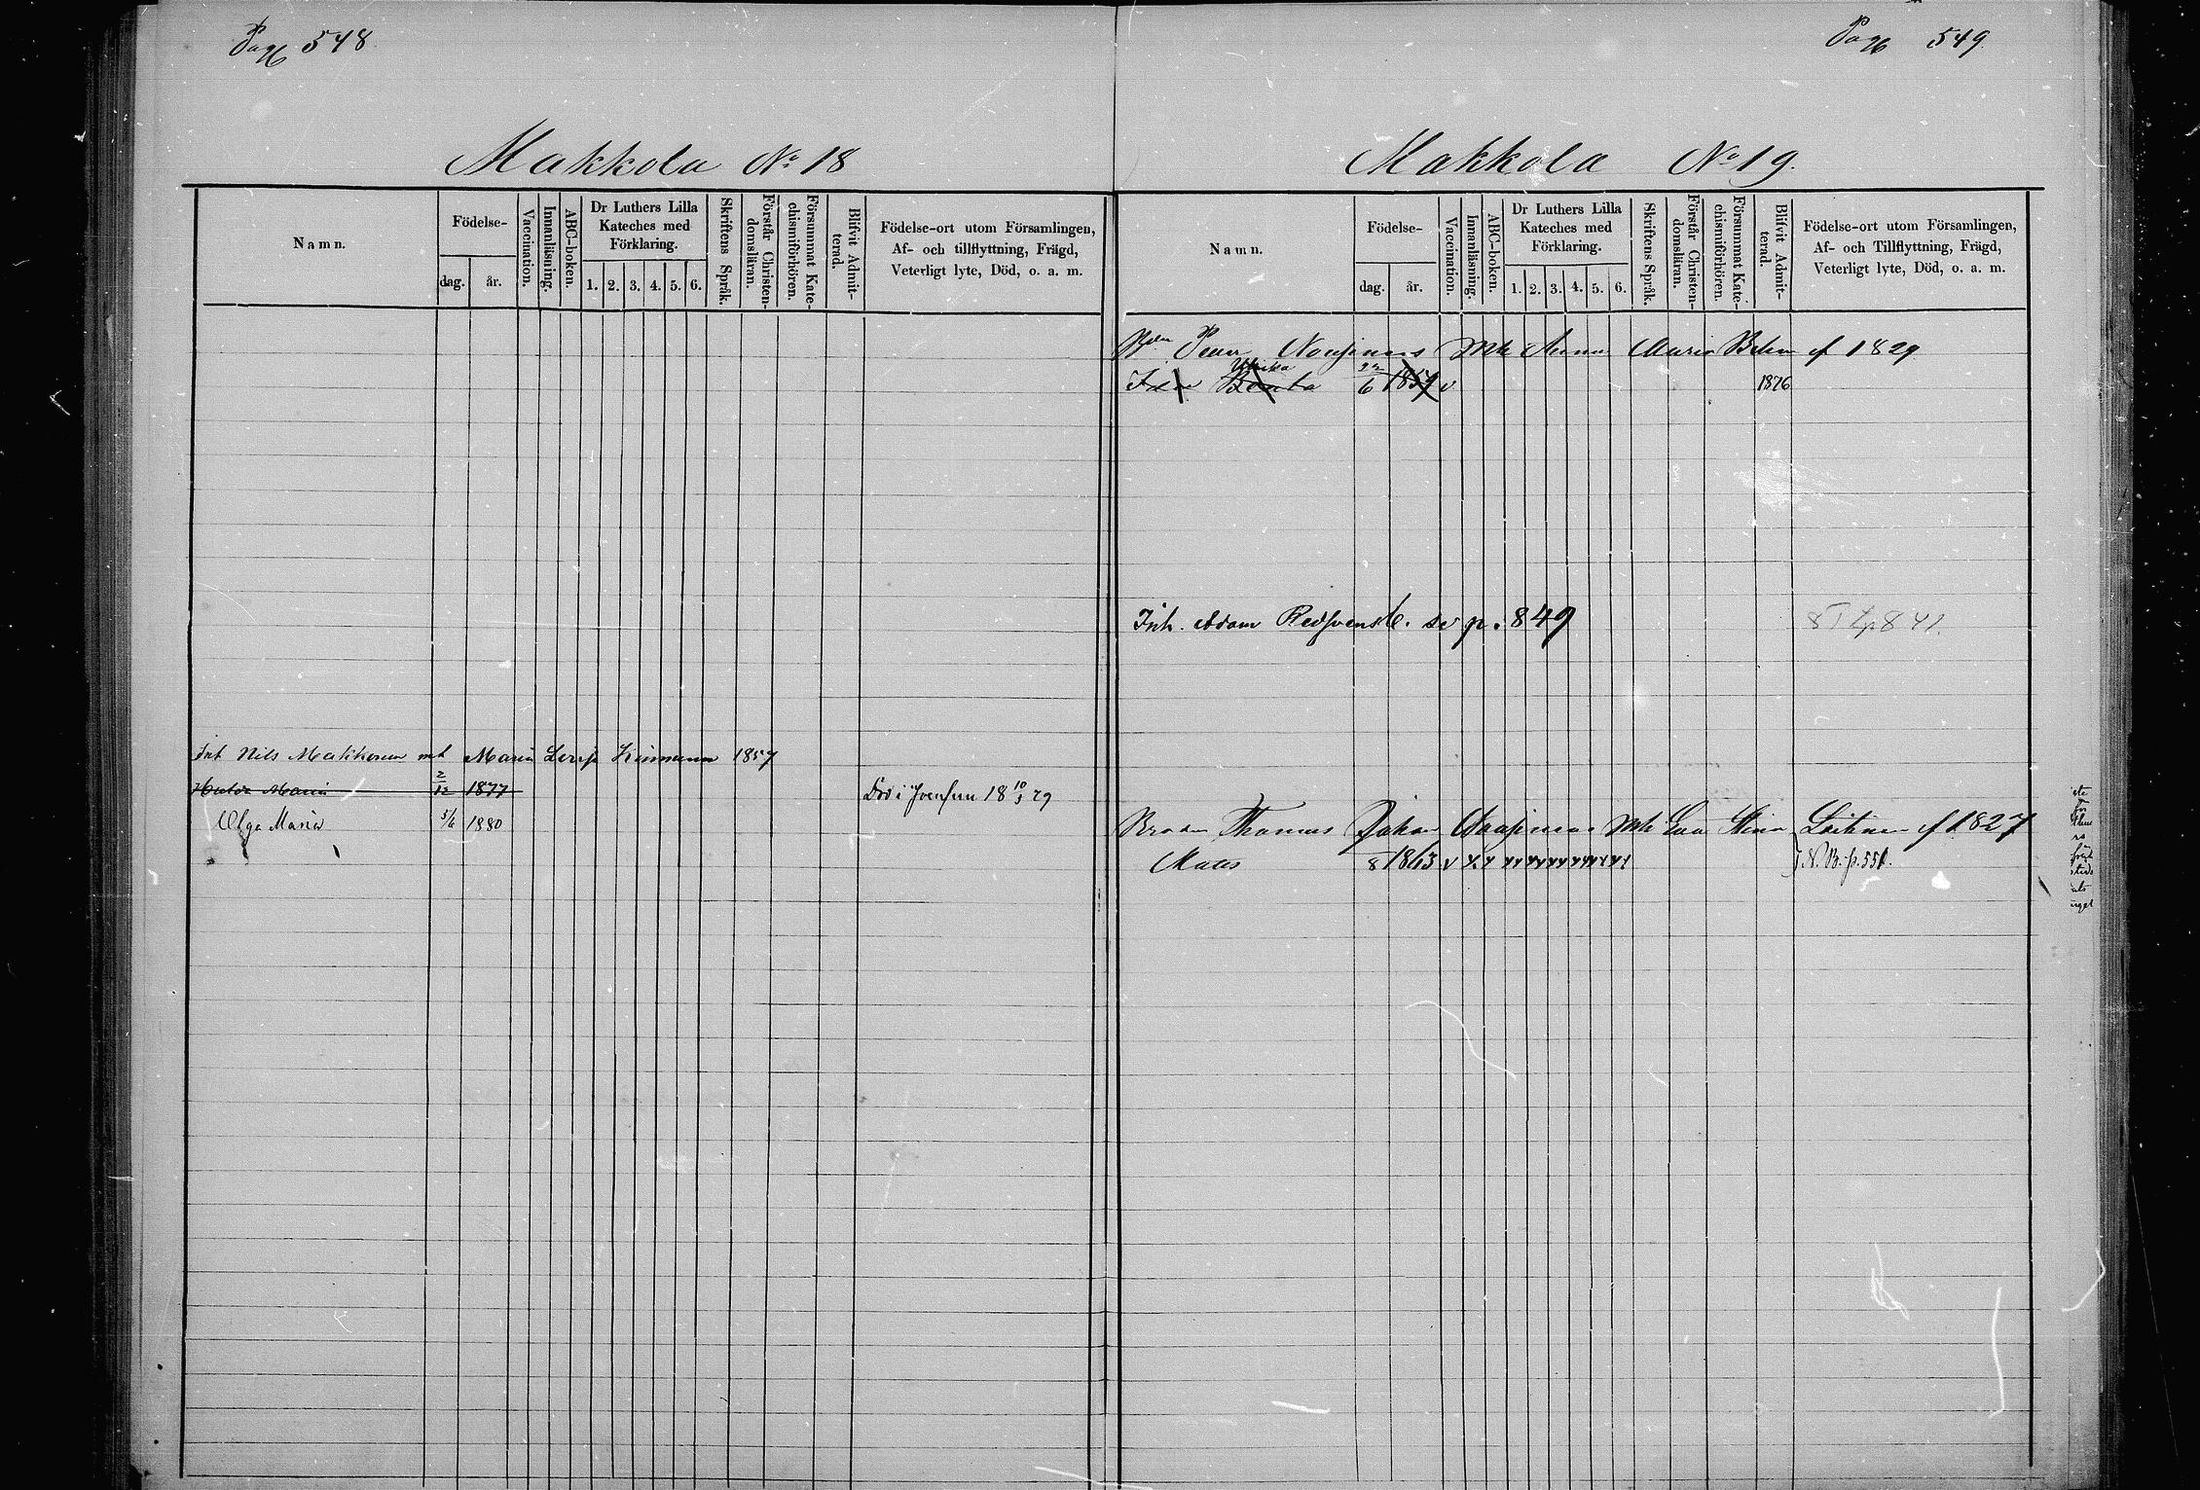 Pag 548
Makkola No 18
Namn.
Födelse-
dag.
år.
Vaccination.
Innanläsning.
ABC-boken.
Dr Luthers Lilla
Kateches med
Förklaring.
1. 2. 3. 4. 5. 6.
Skriftens Språk.
Förstår Christen-
domsläran.
Försummat Kate-
chismiförhören.
Blifvit Admit-
terad.
Födelse-ort utom Församlingen,
Af- och tillflyttning, Frägd,
Veterligt lyte, Död, o. a. m.
Inh Nils Makkonen mh Maria Kinnunen 1857
Hulda Maria 2/12 1877 Död i Joensuu 18 10/3 79
Olga Maria 5/6 1880
Pag 549.
Makkola No 19.
Namn.
Födelse-
dag.
år.
Vaccination.
Innanläsning.
ABC-boken.
Dr Luthers Lilla
Kateches med
Förklaring.
1. 2. 3. 4. 5. 6.
Skriftens Språk.
Förstår Christen-
domsläran.
Försummat Kate-
chismiförhören.
Blifvit Admit-
terad.
Födelse-ort utom Församlingen,
Af- och Tillflyttning, Frägd,
Veterligt lyte, Död, o. a. m.
Petter Mh Anna Maria f 1829
Ulrika
1857 v 1876
Inh. Adam se p. 849
Thomas Johan Mh Eva Stina f 1827
Maus 8 1863 v N. B. p. 551.